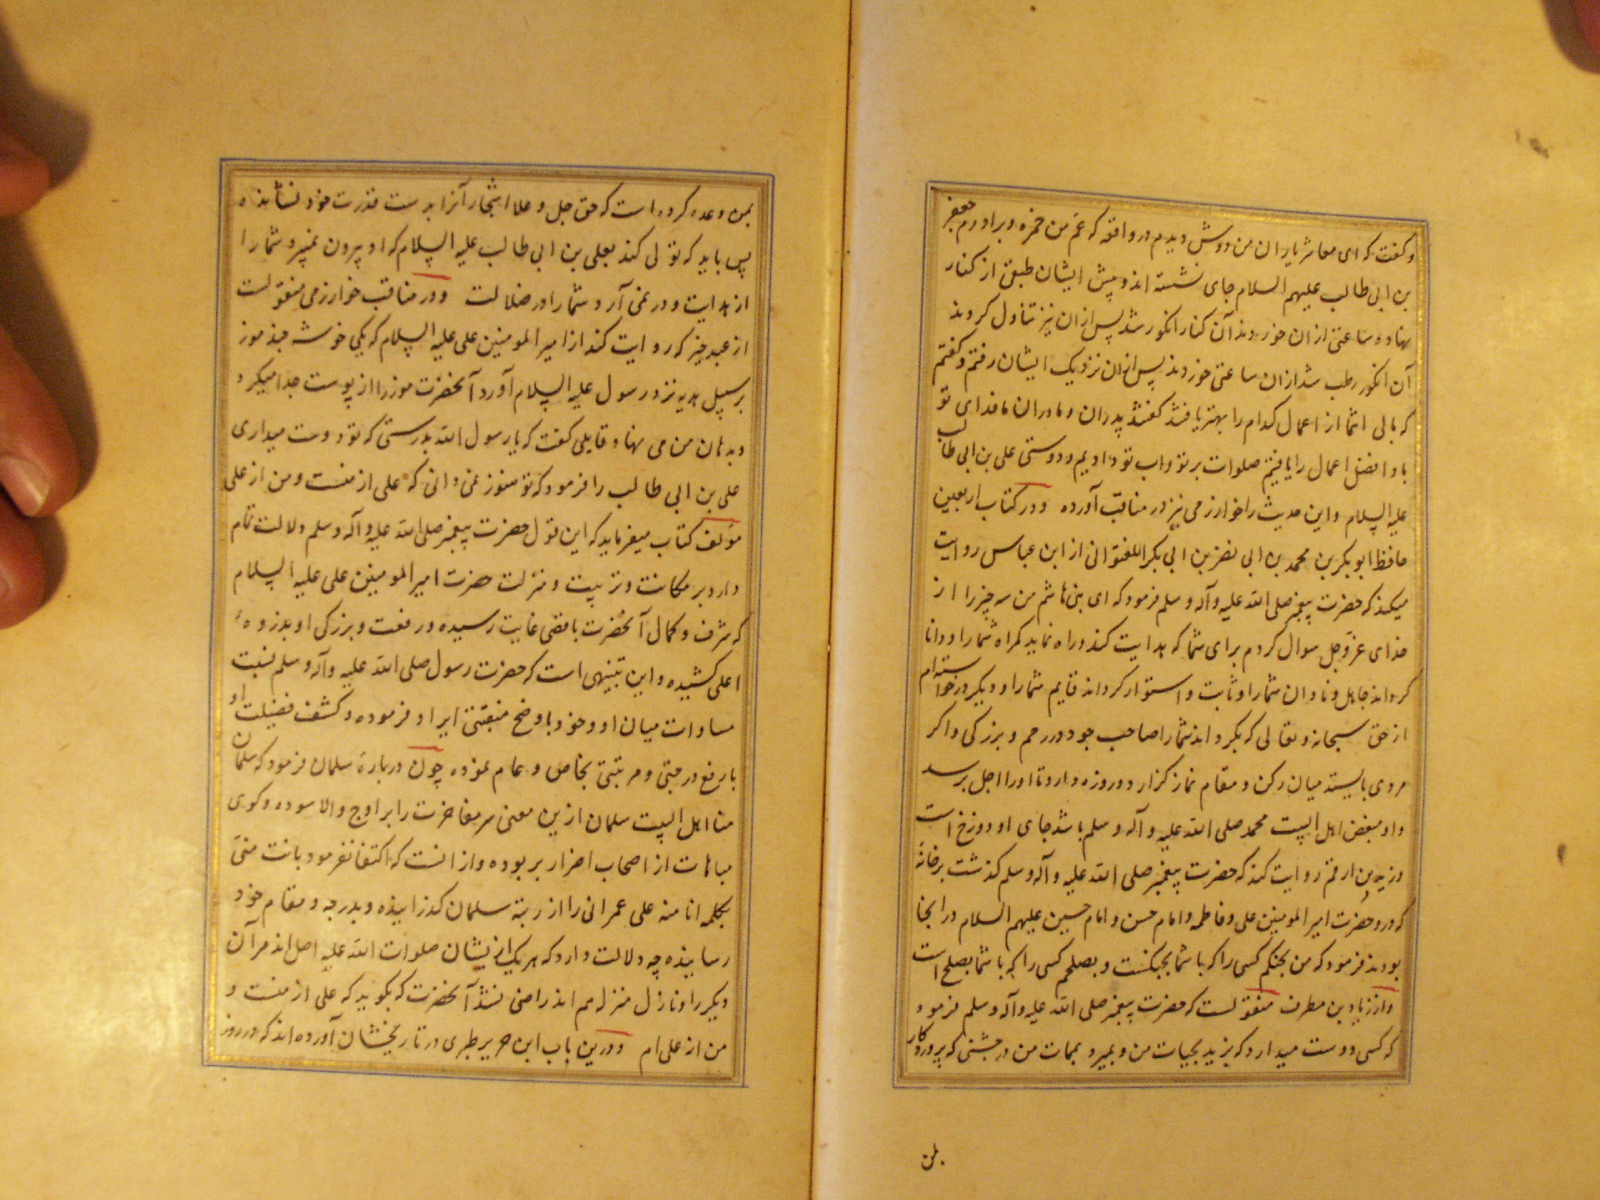 و گفت که ای معاشر یاران من دوش دیدم در واقعه که عم من حمزه و برادرم جعفر
بن ابی طالب علیهم السلام جای نشسته اند و پیش ایشان طبقی از کنار
نهاده ساعتی از ان خوردند آن کنار انکور شد پس از ان نیز تناول کردند
آن انکور رطب شد از ان ساعتی خوردند پس از ان نزدیک ایشان رفتم و کفتم
که بابی انتما از اعمال کدام را بهتر یافتند کفتند پدران و مادران ما فدای تو
باد افضل اعمال را یافتیم صلوات بر تو و آب تو دادیم و دوستی علی بن ابی طالب
علیه السلام و این حدیث را خوارزمی نیز در مناقب آورده و در کتاب اربعین
حافظ ابو بکر بن محمد بن ابی نصر بن ابی بکر اللفتوانی از ابن عباس روایت
میکند که حضرت پیغمبر صلی الله علیه و آله و سلم فرمود که ای بنی هاشم من سه چیز را از
خدای عز و جل سوال کردم برای شما که هدایت کند و راه نماید کمراه شما را و دانا
کرداند جاهل و نادان شما را و ثابت و استوار کرداند قایم شما را و دیکر درخواسته ام
از حق سبحانه و تعالی که بکرداند شما را صاحب جود و رحم و بزرکی و اکر
مردی بایستد میان رکن و مقام نماز کزارد و روزه دارد تا او را اجل برسد
و او مبغض اهل البیت محمد صلی الله علیه و آله و سلم باشد جای او دوزخ است
و زید بن ارقم روایت کند که حضرت پیغمبر صلی الله علیه و آله و سلم کذشت بر خانه
که درو حضرت امیر المومنین علی و فاطمه و امام حسن و امام حسین علیهم السلام در انجا
بودند فرمود که من بجنکم کسی را که با شما بجنکست و بصلحم کسی را که با شما بصلح است
و از زیاد بن مطرف منقولست که حضرت پیغمبر صلی الله علیه و آله و سلم فرمود
که کسی دوست میدارد که بزید بحیات من و بمیرد بممات من در جنتی که پروردکار
من
بمن وعده کرده است که حق جل و علا اشجار آنرا بدست قدرت خود نشانده
پس باید که تولی کند بعلی بن ابی طالب علیه السلام که او بیرون نمیبرد شما را
از هدایت و در نمی آرد شما را در ضلالت و در مناقب خوارزمی منقولست
از عبد خیر که روایت کند از امیر المومنین علی علیه السلام که یکی خوشه جند موز
بر سبیل هدیه نزد رسول علیه السلام آورد آنحضرت موز را از پوست جدا میکرد
و بدهان من می نهاد قایلی کفت که یا رسول الله بدرستی که تو دوست میداری
علی بن ابی طالب را فرمود که تو هنوز نمی دانی که علی از منست و من از علی
مؤلف کتاب میفرماید که این قول حضرت پیغمبر صلی الله علیه و آله و سلم دلالت تمام
دارد بر مکانت و تربیت و منزلت حضرت امیر المومنین علی علیه السلام
که شرف و کمال آنحضرت باقصی غایت رسیده و رفعت و بزرکی او بذروهٔ
اعلی کشیده و این تنبیهی است که حضرت رسول صلی الله علیه و آله و سلم بنسبت
مساوات میان او و خود باوضح منقبتی ایراد فرموده و کشف فضیلت او
بارفع درجتی و مرتبتی بخاص و عام نموده چون در بارهٔ سلمان فرمود که سلمان
منا اهل البیت سلمان ازین معنی سر مفاخرت را بر اوج والا سوده و کوی
مباهات از اصحاب احزار بر بوده و ازانست که اکتفا نفرمود بانت منی
بکلمه انا منه علی عمرانی را از رتبهٔ سلمان کذرانیده و بدرجه و مقام خود
رسانیده چه دلالت دارد که هر یک از ایشان صلوات الله علیه اصل اند مر آن
دیکر را و نازل منزله هم اند راضی نشد آنحضرت که بکوید که علی از منست و
من از علی ام و درین باب ابن جریر طبری در تاریخشان آورده اند که در روز